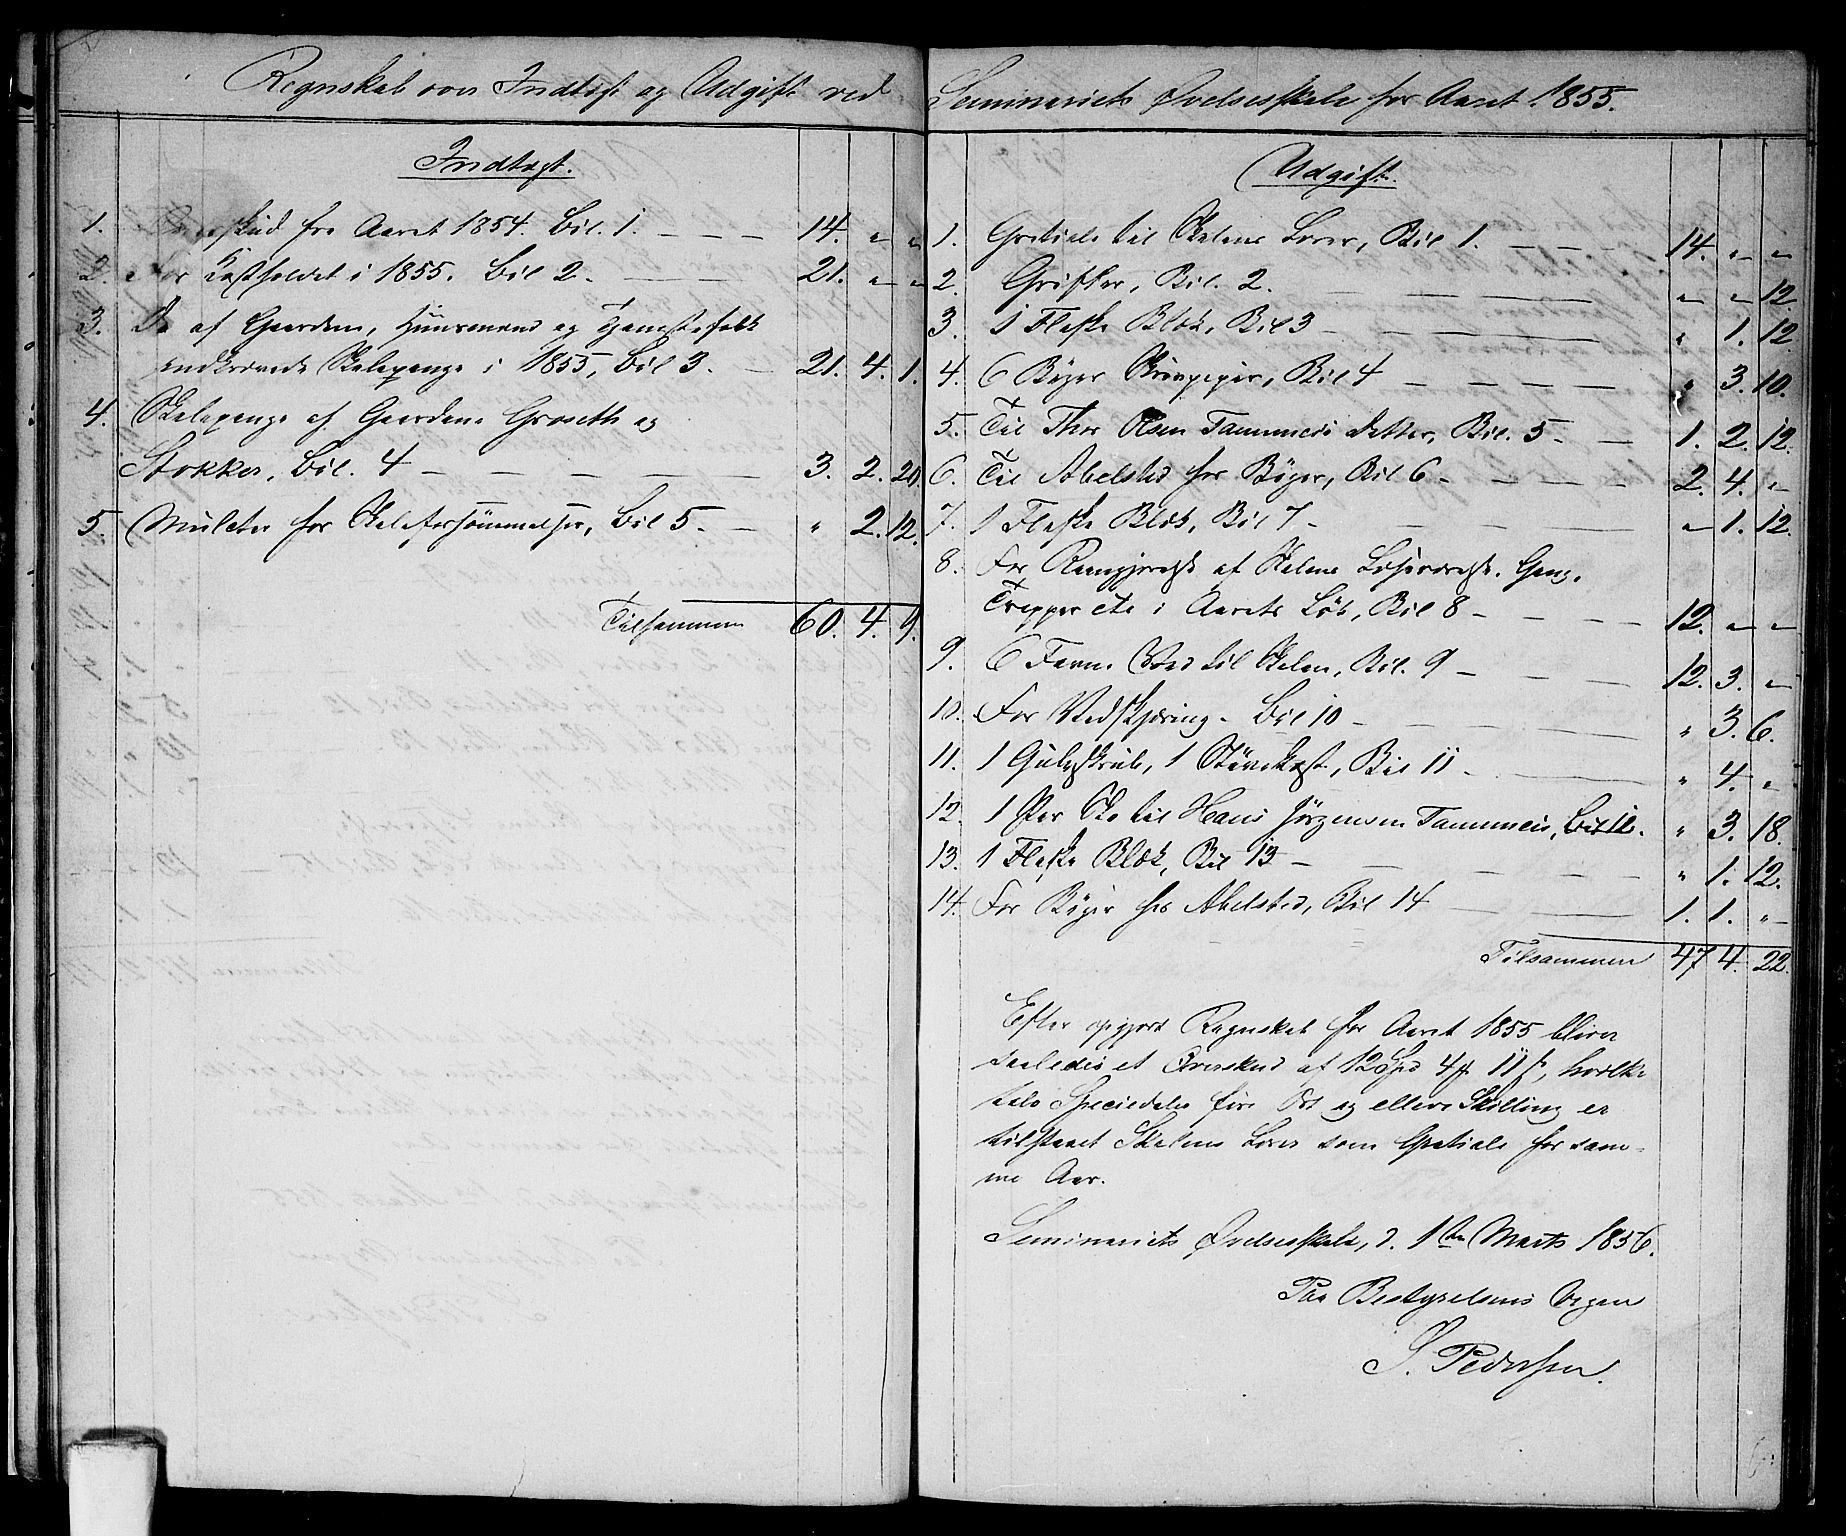 Regnskab over Indtægt og Udgift ved Seminariets Øvelsesskole for Aaret 1855.
Indtægt.
1. Overskud fra Aaret 1854. Bil. 1. — — — 14. " "
2. For Kostholdet i 1855. Bil 2. — — — 21. " "
3. Do af Gaardm, Huusmænd og Tjenestefolk
indkrævede Skolepenge i 1855, Bil 3. — 21. 4. 1.
4. Skolepenge af Gaardene Graseth og
Stokker, Bil. 4 — — — — 3. 2. 20.
5. Mulcter for Skoleforsömmelser, Bil 5. — " 2. 12.
Tilsammen 60. 4. 9.
Udgift.
1. Gratiale til Skolens Lærer, Bil 1. — — 14. " "
2. Grifler, Bil. 2. — — — " " 12
3. 1 Flaske Blæk, Bil 3 — — — " 1. 12.
4. 6 Bøger Skrivpapir, Bil 4 — — — " 3. 10.
5. Til Thor Olsen Tammeis Datter, Bil. 5. — 1. 2. 12.
6. Til Abelsted for Bøger, Bil 6 — — — 2. 4. "
7. 1 Flaske Blæk, Bil 7 — — — " 1. 12
8. For Reengjøring af Skolens Læseværelse, Gang,
Trapper etc i Aarets Løb, Bil 8 — — — 12. " "
9. 6 Favne Ved til Skolen, Bil. 9 — — — 12. 3. "
10. For Vedskjæring. Bil 10 — — — " 3. 6.
11. 1 Gulvskrub, 1 Stövekost, Bil 11 — — " 4. "
12. 1 Par Sko til Hans Jörgensen Tammeis, Bil 12. " 3. 18.
13. 1 Flaske Blæk, Bil 13 — — — " 1. 12.
14. For Bøger hos Abelsted, Bil 14 — — 1. 1. "
Tilsammen 47 4. 22.
Efter opgjort Regnskab for Aaret 1855 bliver
saaledes et Overskud af 12 Spd 4 11 ß, hvilke
tolv Speciedaler fire Ort og elleve Skilling er
tilstaaet Skolens Lærer som Gratiale for sam-
me Aar.
Seminariets Øvelsesskole, d. 1ste Marts 1856.
Paa Bestyrelsens Vegne
S. Pedersen.